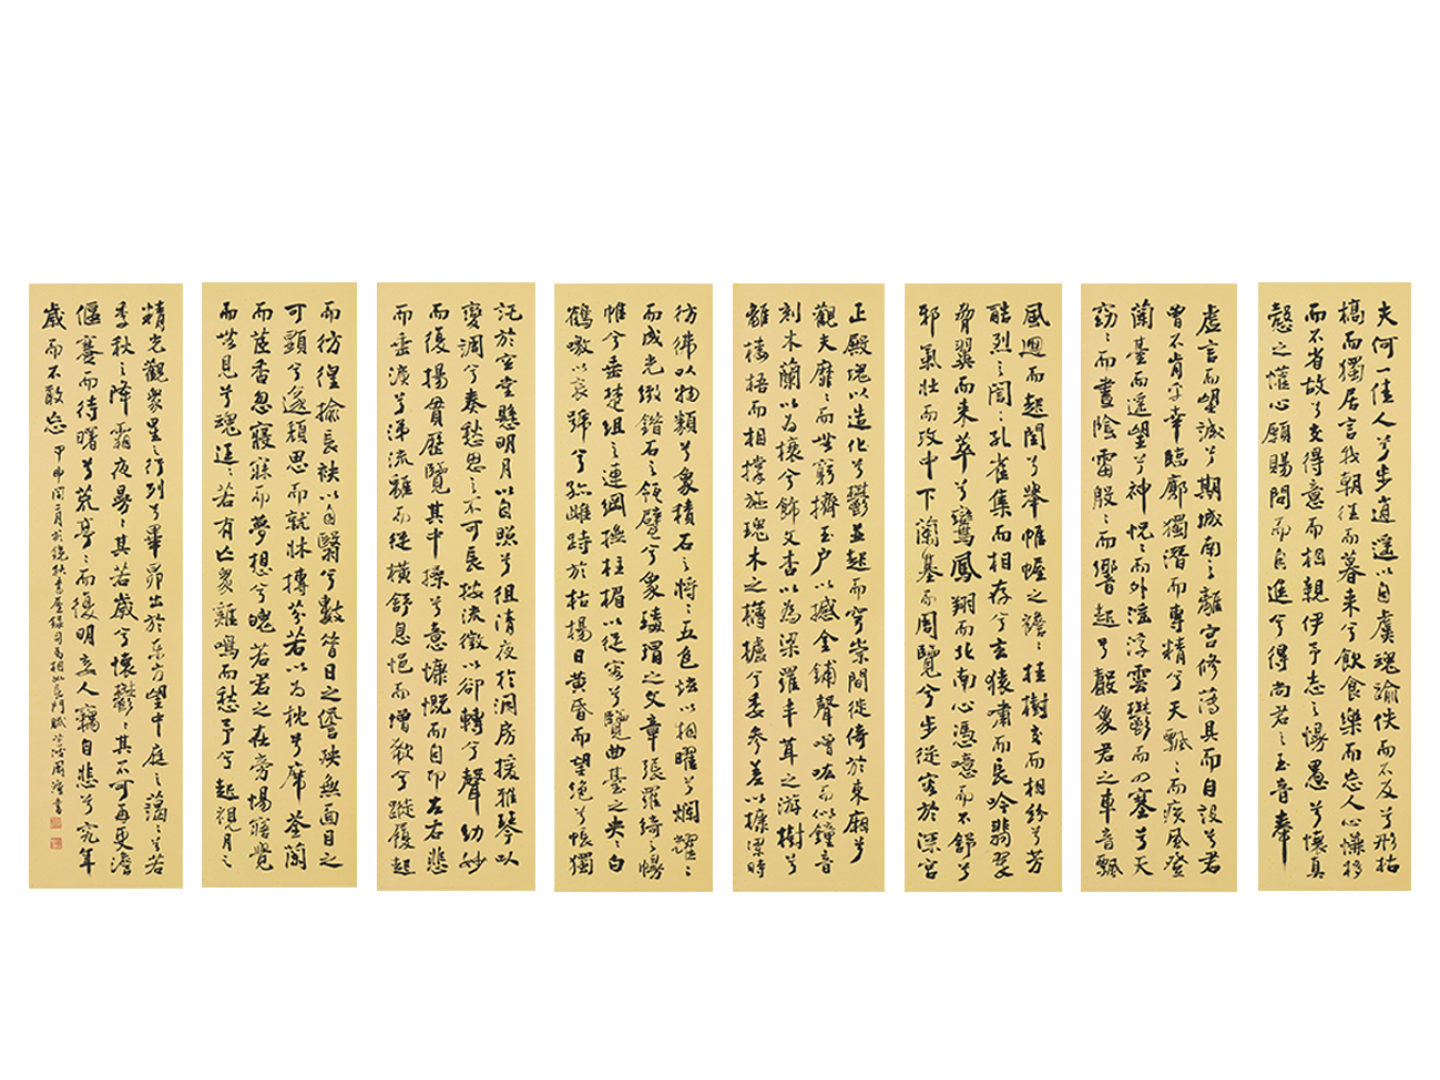 夫何一佳人兮步逍遙以自虞魂踰佚而不反兮形枯
槁而獨居言我朝往而暮来兮飲食樂而忘人心慊移
而不省故兮交得意而相親伊予志之慢愚兮懷真
愨之懽心願賜問而自進兮得尚君之玉音奉
虛言而望誠兮期城南之離宮修薄具而自設兮君
曾不肯乎幸臨廓獨潛而專精兮天飄〻而疾風登
蘭臺而遙望兮神怳〻而外淫浮雲鬱而四塞兮天
窈〻而晝陰雷殷〻而響起兮聲象君之車音飄
風迴而起閨兮舉帷幄之襜〻桂樹交而相紛兮芳
酷烈之誾〻孔雀集而相存兮玄猿嘯而長吟翡翠
脅翼而来萃兮鸞鳳翔而北南心憑噫而不舒兮
邪氣壯而攻中下蘭臺而周覽兮步從容於深宮
正殿塊以造化兮鬱並起而穹崇間徙倚於東廂兮
觀夫靡〻而無窮擠玉户以撼金鋪聲噌吰而似鐘音
刻木蘭以為榱兮飾文杏以為梁羅丰茸之游樹兮
離樓梧而相撐施瑰木之欂櫨兮委參差以槺梁時
彷彿以物類兮象積石之將〻五色炫以相曜兮爛耀〻
而成光緻錯石之瓴甓兮象瑇瑁之文章張羅綺之幔
帷兮垂楚組之連綱撫柱楣以從容兮覽曲臺之央〻白
鶴噭以哀號兮孤雌跱於枯楊日黄昏而望絕兮悵獨
託於空堂懸明月以自照兮徂清夜於洞房援雅琴以
變調兮奏愁思之不可長按流徵以卻轉兮聲幼妙
而復揚貫歷覽其中操兮意慷慨而自卬左右悲
而垂淚兮涕流離而從横舒息悒而增欷兮蹝履起
而彷徨揄長袂以自翳兮數昔日之諐殃無面目之
可顯兮遂頹思而就牀摶芬若以為枕兮席荃蘭
而茝香忽寢寐而夢想兮魄若君之在旁惕寤覺
而無見兮魂迋〻若有亡眾雞鳴而愁予兮起視月之
精光觀眾星之行列兮畢昴出於東方望中庭之藹〻兮若
季秋之降霜夜曼〻其若歲兮懷鬱〻其不可再更澹
偃蹇而待曙兮荒亭〻而復明妾人竊自悲兮究年
歲而不敢忘 甲申閏二月於書屋錄司馬相如長門賦書